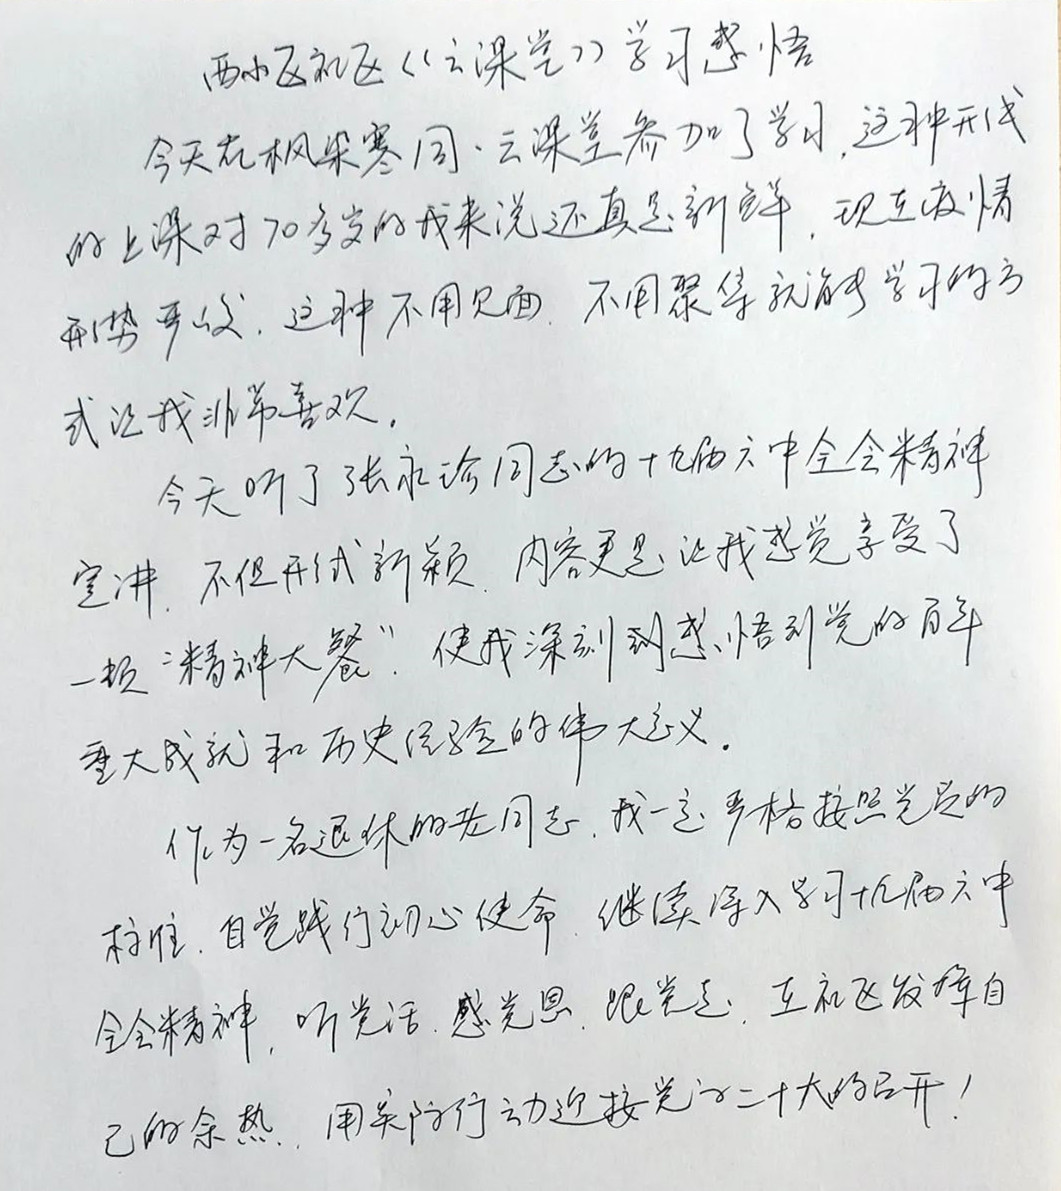 西小区社区《云课堂》学习感悟
今天在枫朵寒同·云课堂参加了学习,这种形式
的上课对70多岁的我来说还真是新鲜,现在疫情
形势严峻,这种不用见面,不用聚集就能学习的方
式让我非常喜欢。
今天听了张永珍同志的十九届六中全会精神
宣讲,不但形式新颖,内容更是让我感觉享受了
一顿“精神大餐”,使我深刻到感悟到党的百年
重大成就和历史经验的伟大意义。
作为一名退休的老同志,我一定严格按照党员的
标准,自觉践行初心使命,继续深入学习十九届六中
全会精神,听党话,感党恩,跟党走,在社区发挥自
己的余热,用实际行动迎接党的二十大的召开!